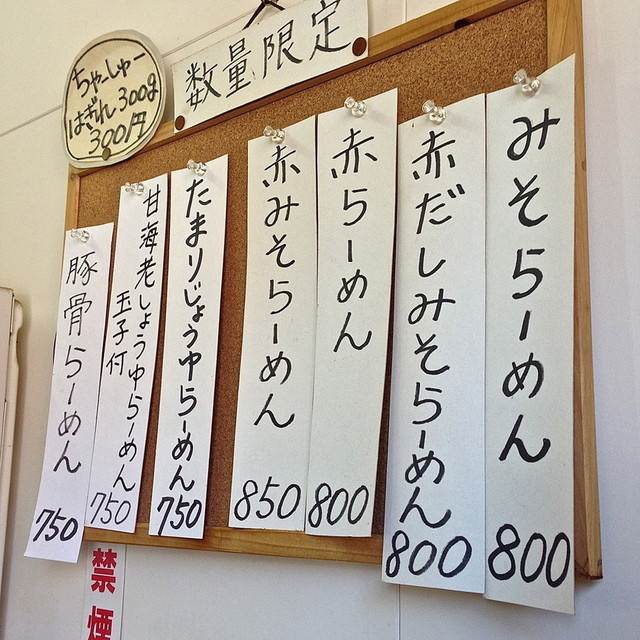 数量限定
ちゃーしゅー
はぎれ300g
300円
みそらーめん
800
赤だしみそらーめん
800
赤らーめん
800
赤みそらーめん
850
たまりじょうゆらーめん
750
甘海老しょうゆらーめん
玉子付
750
豚骨らーめん
750
禁煙